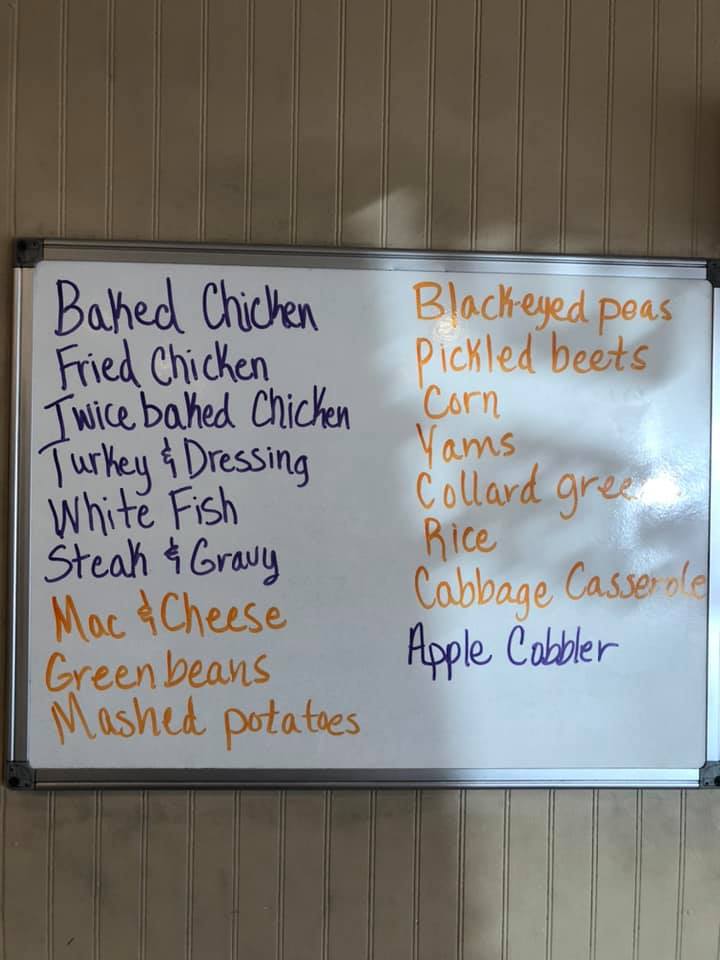 Baked Chicken
Fried Chicken
Twice baked Chicken
Turkey & Dressing
White Fish
Steak & Gravy
Mac & Cheese
Green beans
Mashed potatoes
Black-eyed peas
Pickled beets
Corn
Yams
Collard greens
Rice
Cabbage Casserole
Apple Cobbler